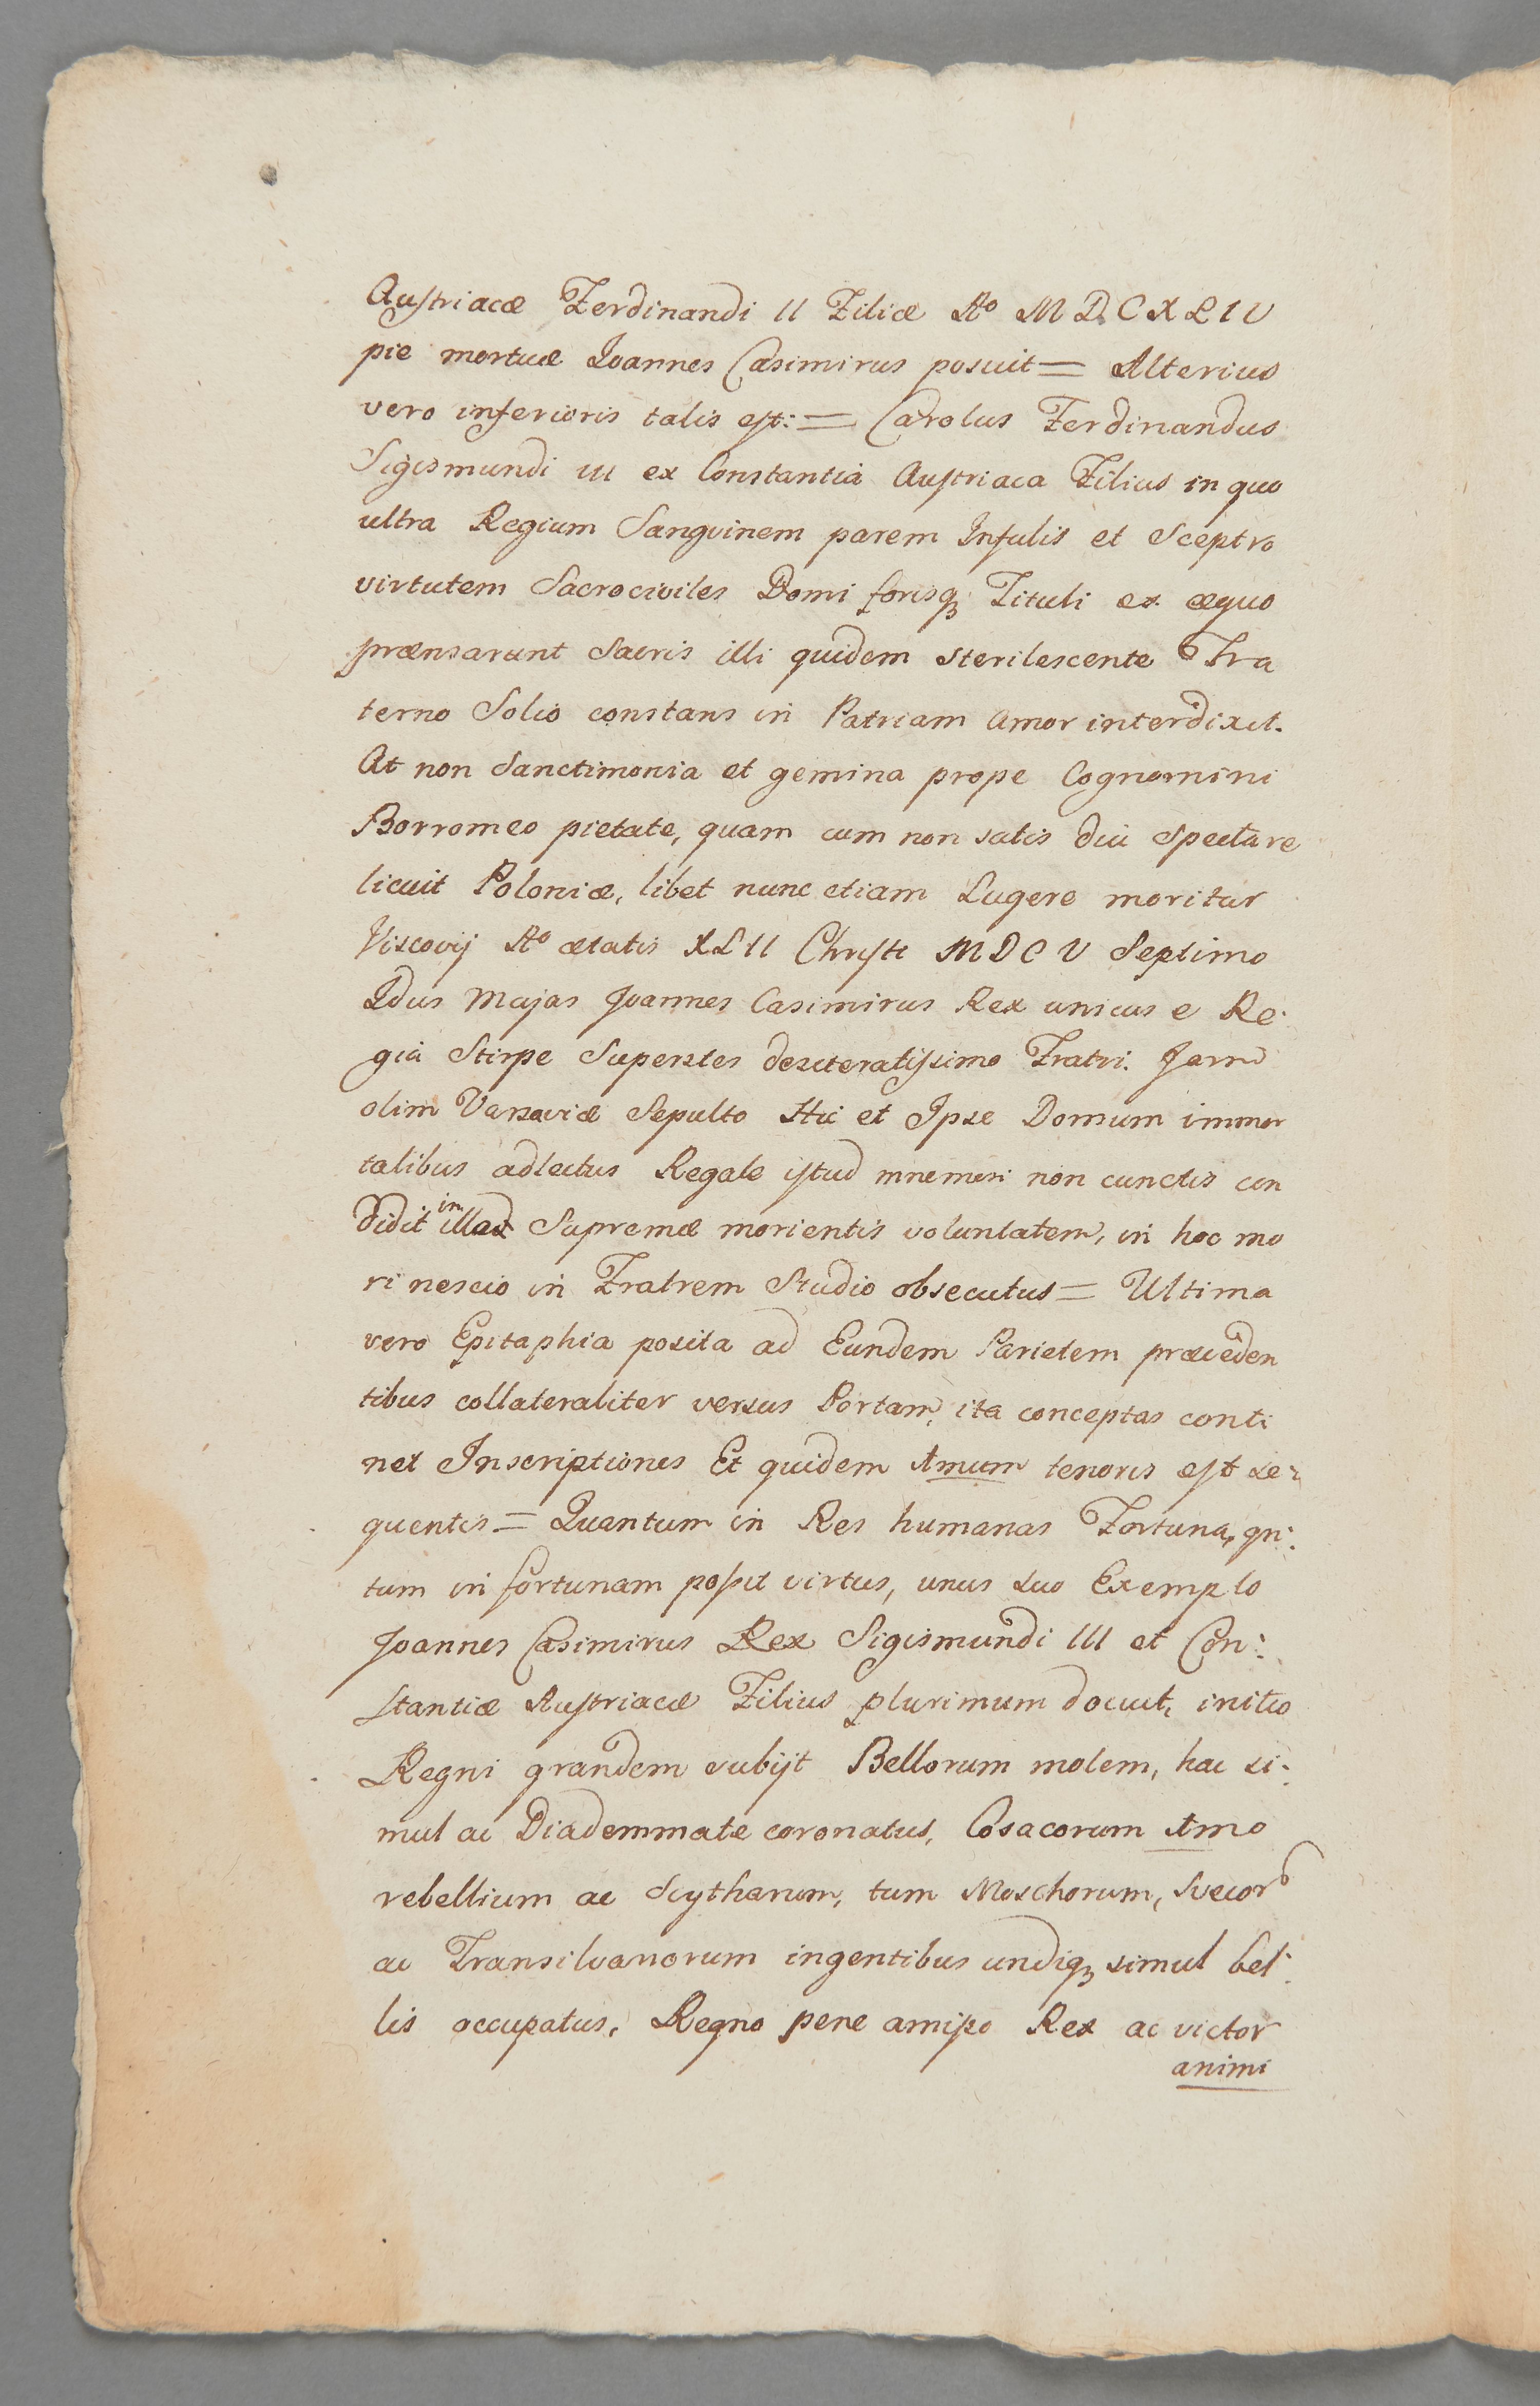 Austriacæ Ferdinandi II Filiæ Aº MDCXLIV
pie mortuæ Joannes Casimirus posuit = Alterius
vero inferioris talis est: = Carolus Ferdinandus
Sigismundi III ex Constantia Austriaca Filius in quo
ultra Regium Sangvinem parem Infulis et Sceptro
virtutem Sacrociviles Domi forisq; Tituli ex æquo
præensarunt Sacris illi quidem sterilescente Fra
terno Solio constans in Patriam Amor interdixit.
At non Sanctimonia et gemina prope Cognomini
Borromeo pietate, quam cum non satis diu Spectare
licuit Poloniæ, libet nunc etiam Lugere moritur
Viscovij Aº ætatis XLII Christi MDCV Septimo
Idus Majas Joannes Casimirus Rex unicus e Re:
gia Stirpe Superstes desiteratissimo Fratri. Jam
olim Varsaviæ Sepulto Hic et Ipse Domum immor
talibus adlectus Regale istud mnemosi non cunctis con
didit in Supremæ morientis voluntatem, in hoc mo
ri nescio in Fratrem Studio obsecutus = Ultima
vero Epitaphia posita ad Eundem Parietem præceden
tibus collateraliter versus Portam, ita conceptas conti
net Inscriptiones Et quidem 1mum tenoris est se:
quentis = Quantum in Res humanas Fortuna, qn:
tum in fortunam possit virtus, unus suo Exemplo
Joannes Casimirus Rex Sigismundi III et Con:
stantiæ Austriacæ Filius plurimum docuit, initio
Regni grandem subijt Bellorum molem, hac si:
mul ac Diademmate coronatus, Cosacorum 1mo
rebellium ac Scytharum, tum Moschorum, Svecor
ac Transilvanorum ingentibus undiq; simul bel:
lis occupatus, Regno pene amisso Rex ac victor
animi